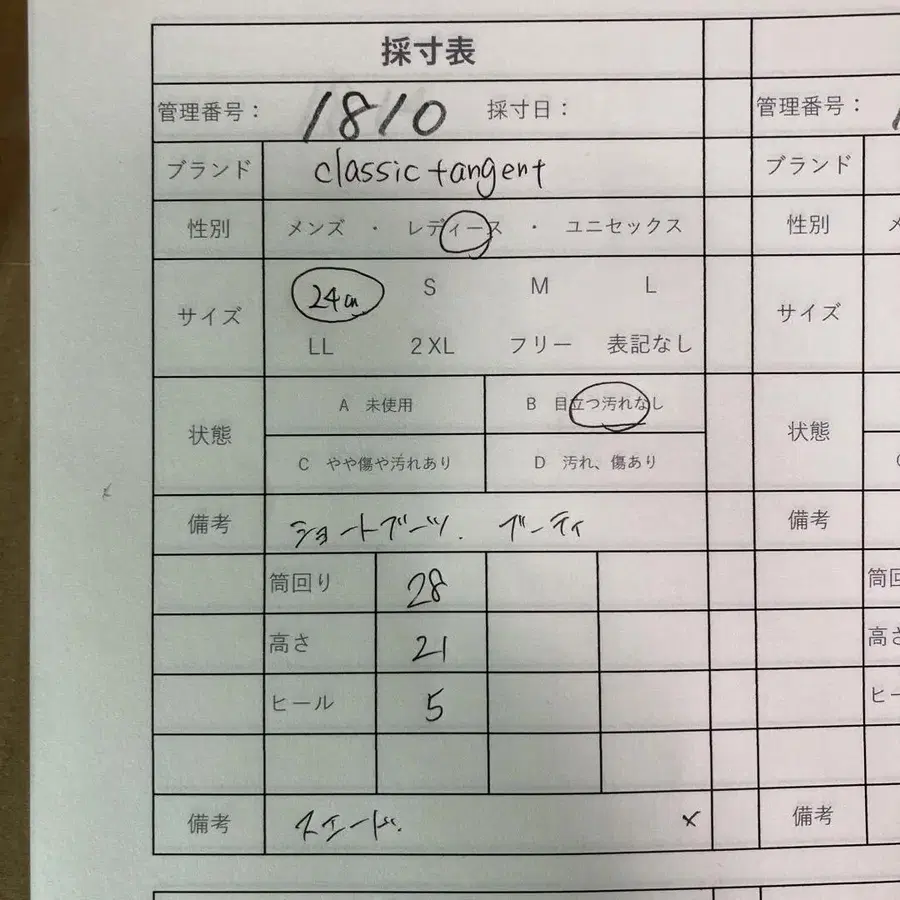 採寸表
管理番号： 1810 採寸日：
ブランド classic tangent
性別 メンズ ・ レディース ・ ユニセックス
サイズ 24cm S M L
LL 2XL フリー 表記なし
状態 A 未使用 B 目立つ汚れなし
C やや傷や汚れあり D 汚れ、傷あり
備考 ショートブーツ. ブーティ
筒回り 28
高さ 21
ヒール 5
備考 スエード. ×
管理番号：
ブランド
性別
サイズ
状態
備考
筒回
高さ
ヒー
備考